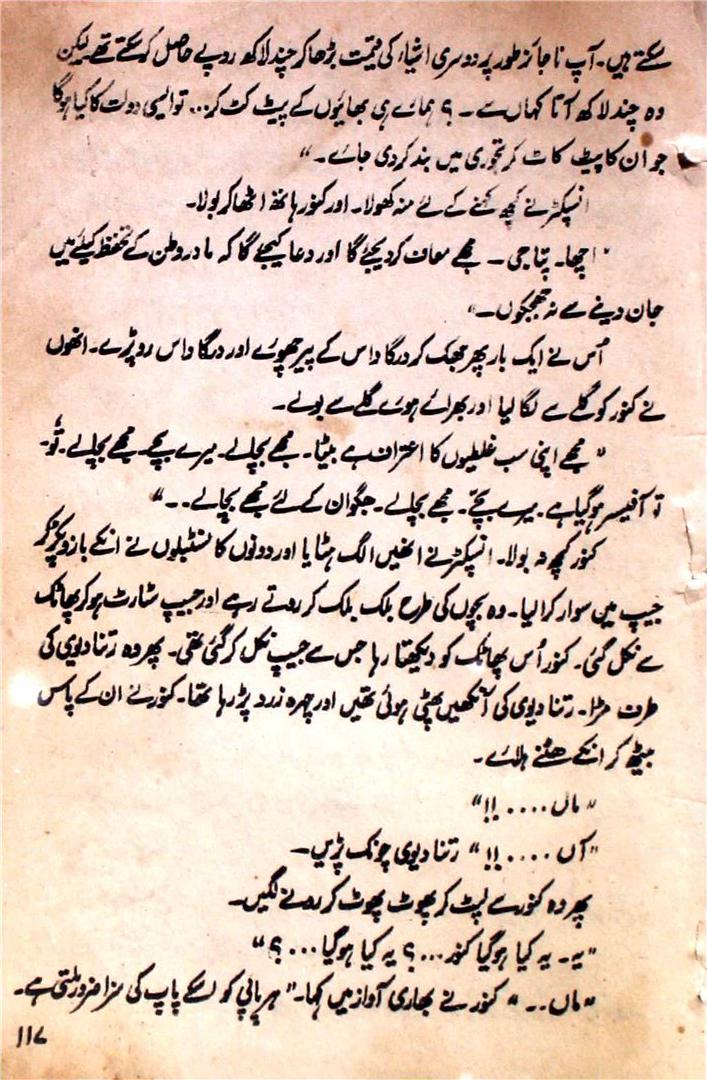 سکتے ہیں۔ آپ ناجائز طور پر دوسری اشیاء کی قیمت بڑھا کر چند لاکھ روپے حاصل کر سکتے تھے لیکن
وہ چند لاکھ آتا کہاں سے۔ ؟ ہمارے ہی بھائیوں کے پیٹ کٹ کر... تو ایسی دولت کا کیا ہوگا
جو ان کا پیٹ کاٹ کر تجوری میں بند کر دی جائے۔"
انسپکٹر نے کچھ کہنے کے لئے منہ کھولا۔ اور کنور ہاتھ اٹھا کر بولا۔
"اچھا۔ پتا جی۔ مجھے معاف کر دیجئے گا اور دعا کیجئے گا کہ مادر وطن کے تحفظ کیلئے میں
جان دینے سے نہ جھجکوں۔"
اُس نے ایک بار پھر جھک کر درگا داس کے پیر چھوئے اور درگا داس رو پڑے۔ انھوں
نے کنور کو گلے سے لگا لیا اور بھرائے ہوئے گلے سے بولے۔
"مجھے اپنی سب غلطیوں کا اعتراف ہے بیٹا۔ مجھے بچالے۔ میرے بچے مجھے بچالے۔ تُو۔
تو آفیسر ہو گیا ہے۔ میرے بچّے۔ مجھے بچالے۔ بھگوان کے لئے مجھے بچالے۔۔"
کنور کچھ نہ بولا۔ انسپکٹر نے انھیں الگ ہٹایا اور دونوں کانسٹبلوں نے انکے بازو پکڑ کر
جیپ میں سوار کرا لیا۔ وہ بچوں کی طرح بلک بلک کر روتے رہے اور جیپ سٹارٹ ہو کر پھاٹک
سے نکل گئی۔ کنور اُس پھاٹک کو دیکھتا رہا جس سے جیپ نکل کر گئی تھی۔ پھر وہ رتنا دیوی کی
طرف مڑا۔ رتنا دیوی کی آنکھیں پھٹی ہوئی تھیں اور چہرہ زرد پڑ رہا تھا۔ کنور نے ان کے پاس
بیٹھ کر انکے گھٹنے ہلائے۔
"ماں....!!"
"آں....!!" رتنا دیوی چونک پڑیں۔
پھر وہ کنور سے لپٹ کر پھوٹ پھوٹ کر رونے لگیں۔
"یہ۔ یہ کیا ہو گیا کنور...؟ یہ کیا ہو گیا...؟"
"ماں۔۔" کنور نے بھاری آواز میں کہا۔ "ہر پاپی کو اسکے پاپ کی سزا ضرور ملتی ہے۔
۱۱۷